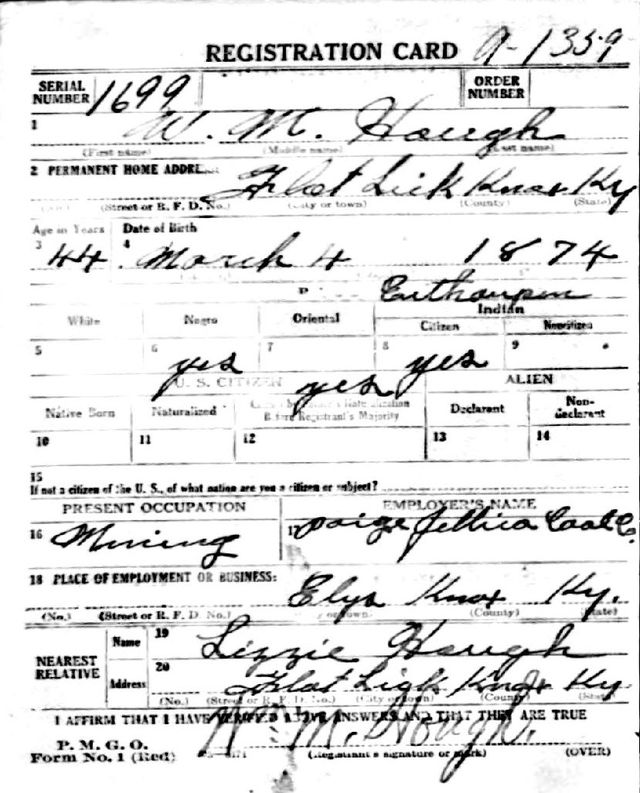 REGISTRATION CARD A-1359
SERIAL NUMBER 1699 ORDER NUMBER
1 W. M. Hough
(First name) (Middle name) (Last name)
2 PERMANENT HOME ADDRESS: Flat Lick Knox Ky
(Street or R. F. D. No.) (City or town) (County) (State)
Age in Years Date of Birth
3 44 4 March 4 1874
Indian
White Negro Oriental Citizen Noncitizen
5 6 yes 7 8 yes 9
U. S. CITIZEN yes ALIEN
Native Born Naturalized Citizen by Father's Naturalization Before Registrant's Majority Declarant Non-declarant
10 11 12 13 14
15
If not a citizen of the U. S., of what nation are you a citizen or subject?
PRESENT OCCUPATION EMPLOYER'S NAME
16 Mining 17 Paige Jellico Coal Co.
18 PLACE OF EMPLOYMENT OR BUSINESS: Elys Knox Ky.
(No.) (Street or R. F. D. No.) (County) (State)
NEAREST RELATIVE Name 19 Lizzie Hough
Address 20 Flat Ligk Knox Ky
(No.) (Street or R. F. D. No.) (City or town) (County) (State)
I AFFIRM THAT I HAVE VERIFIED ABOVE ANSWERS AND THAT THEY ARE TRUE
P. M. G. O.
Form No. 1 (Red) Wm M. Hough.
(Registrant's signature or mark) (OVER)